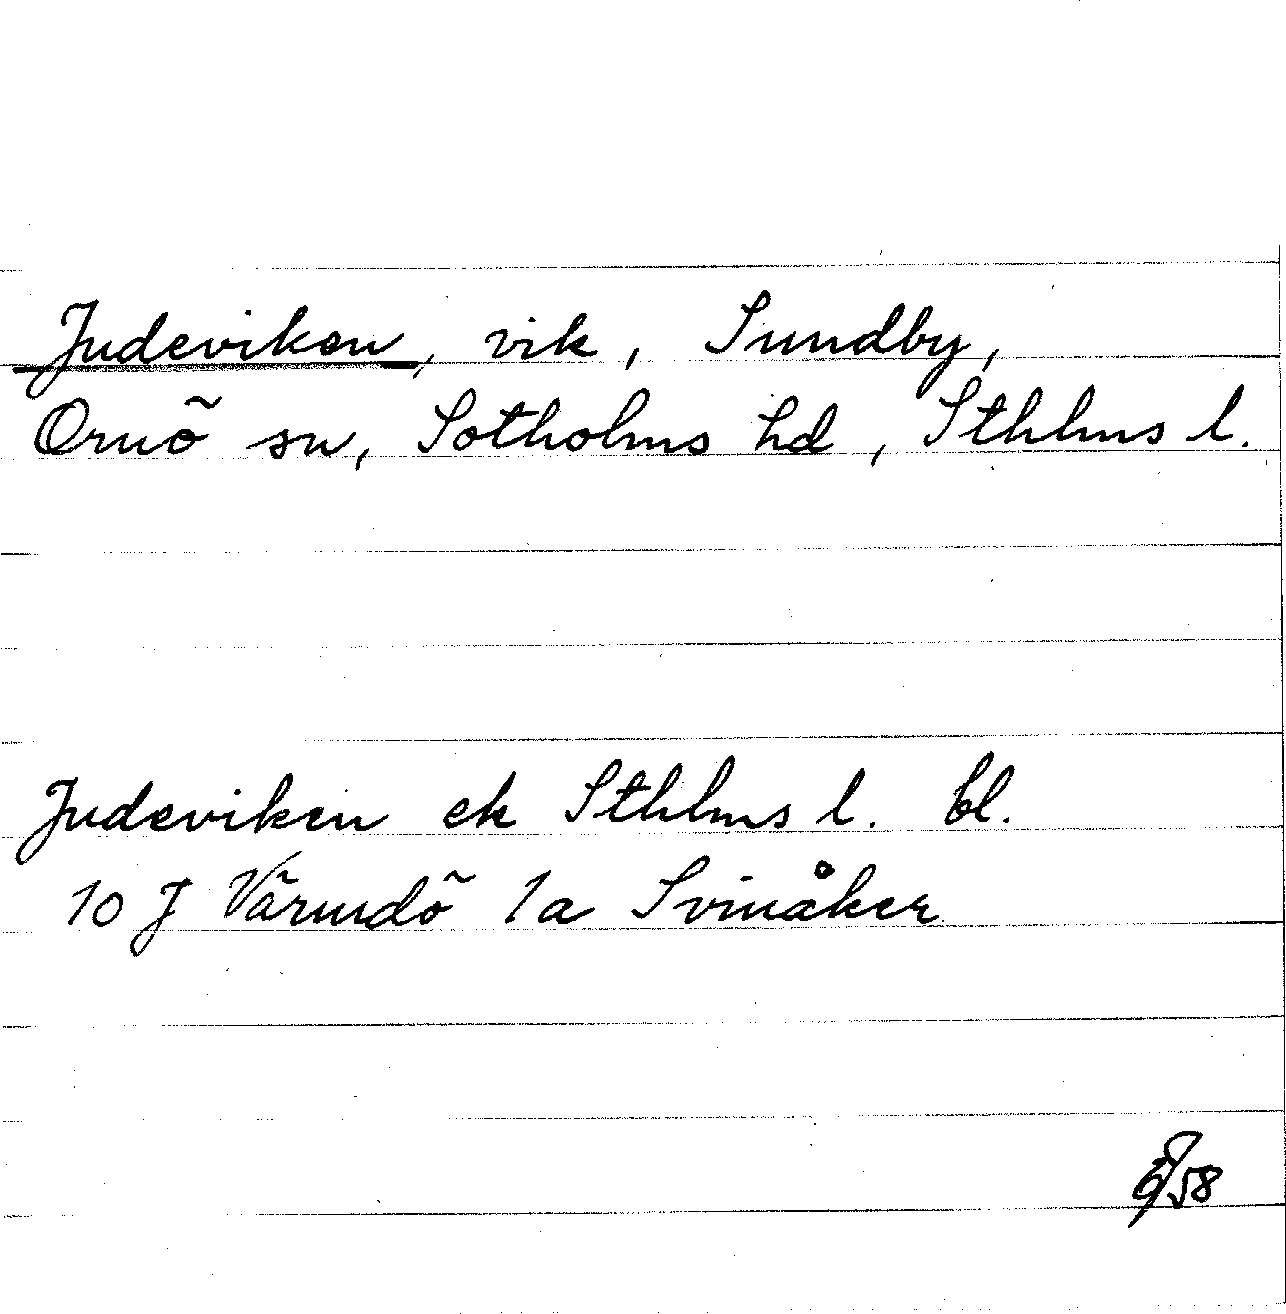 Judeviken, vik, Sundby,
Ornö sn, Sotholms hd, Sthlms l.
Judeviken ek Sthlms l. bl.
10 J Värmdö 1a Svinåker
58